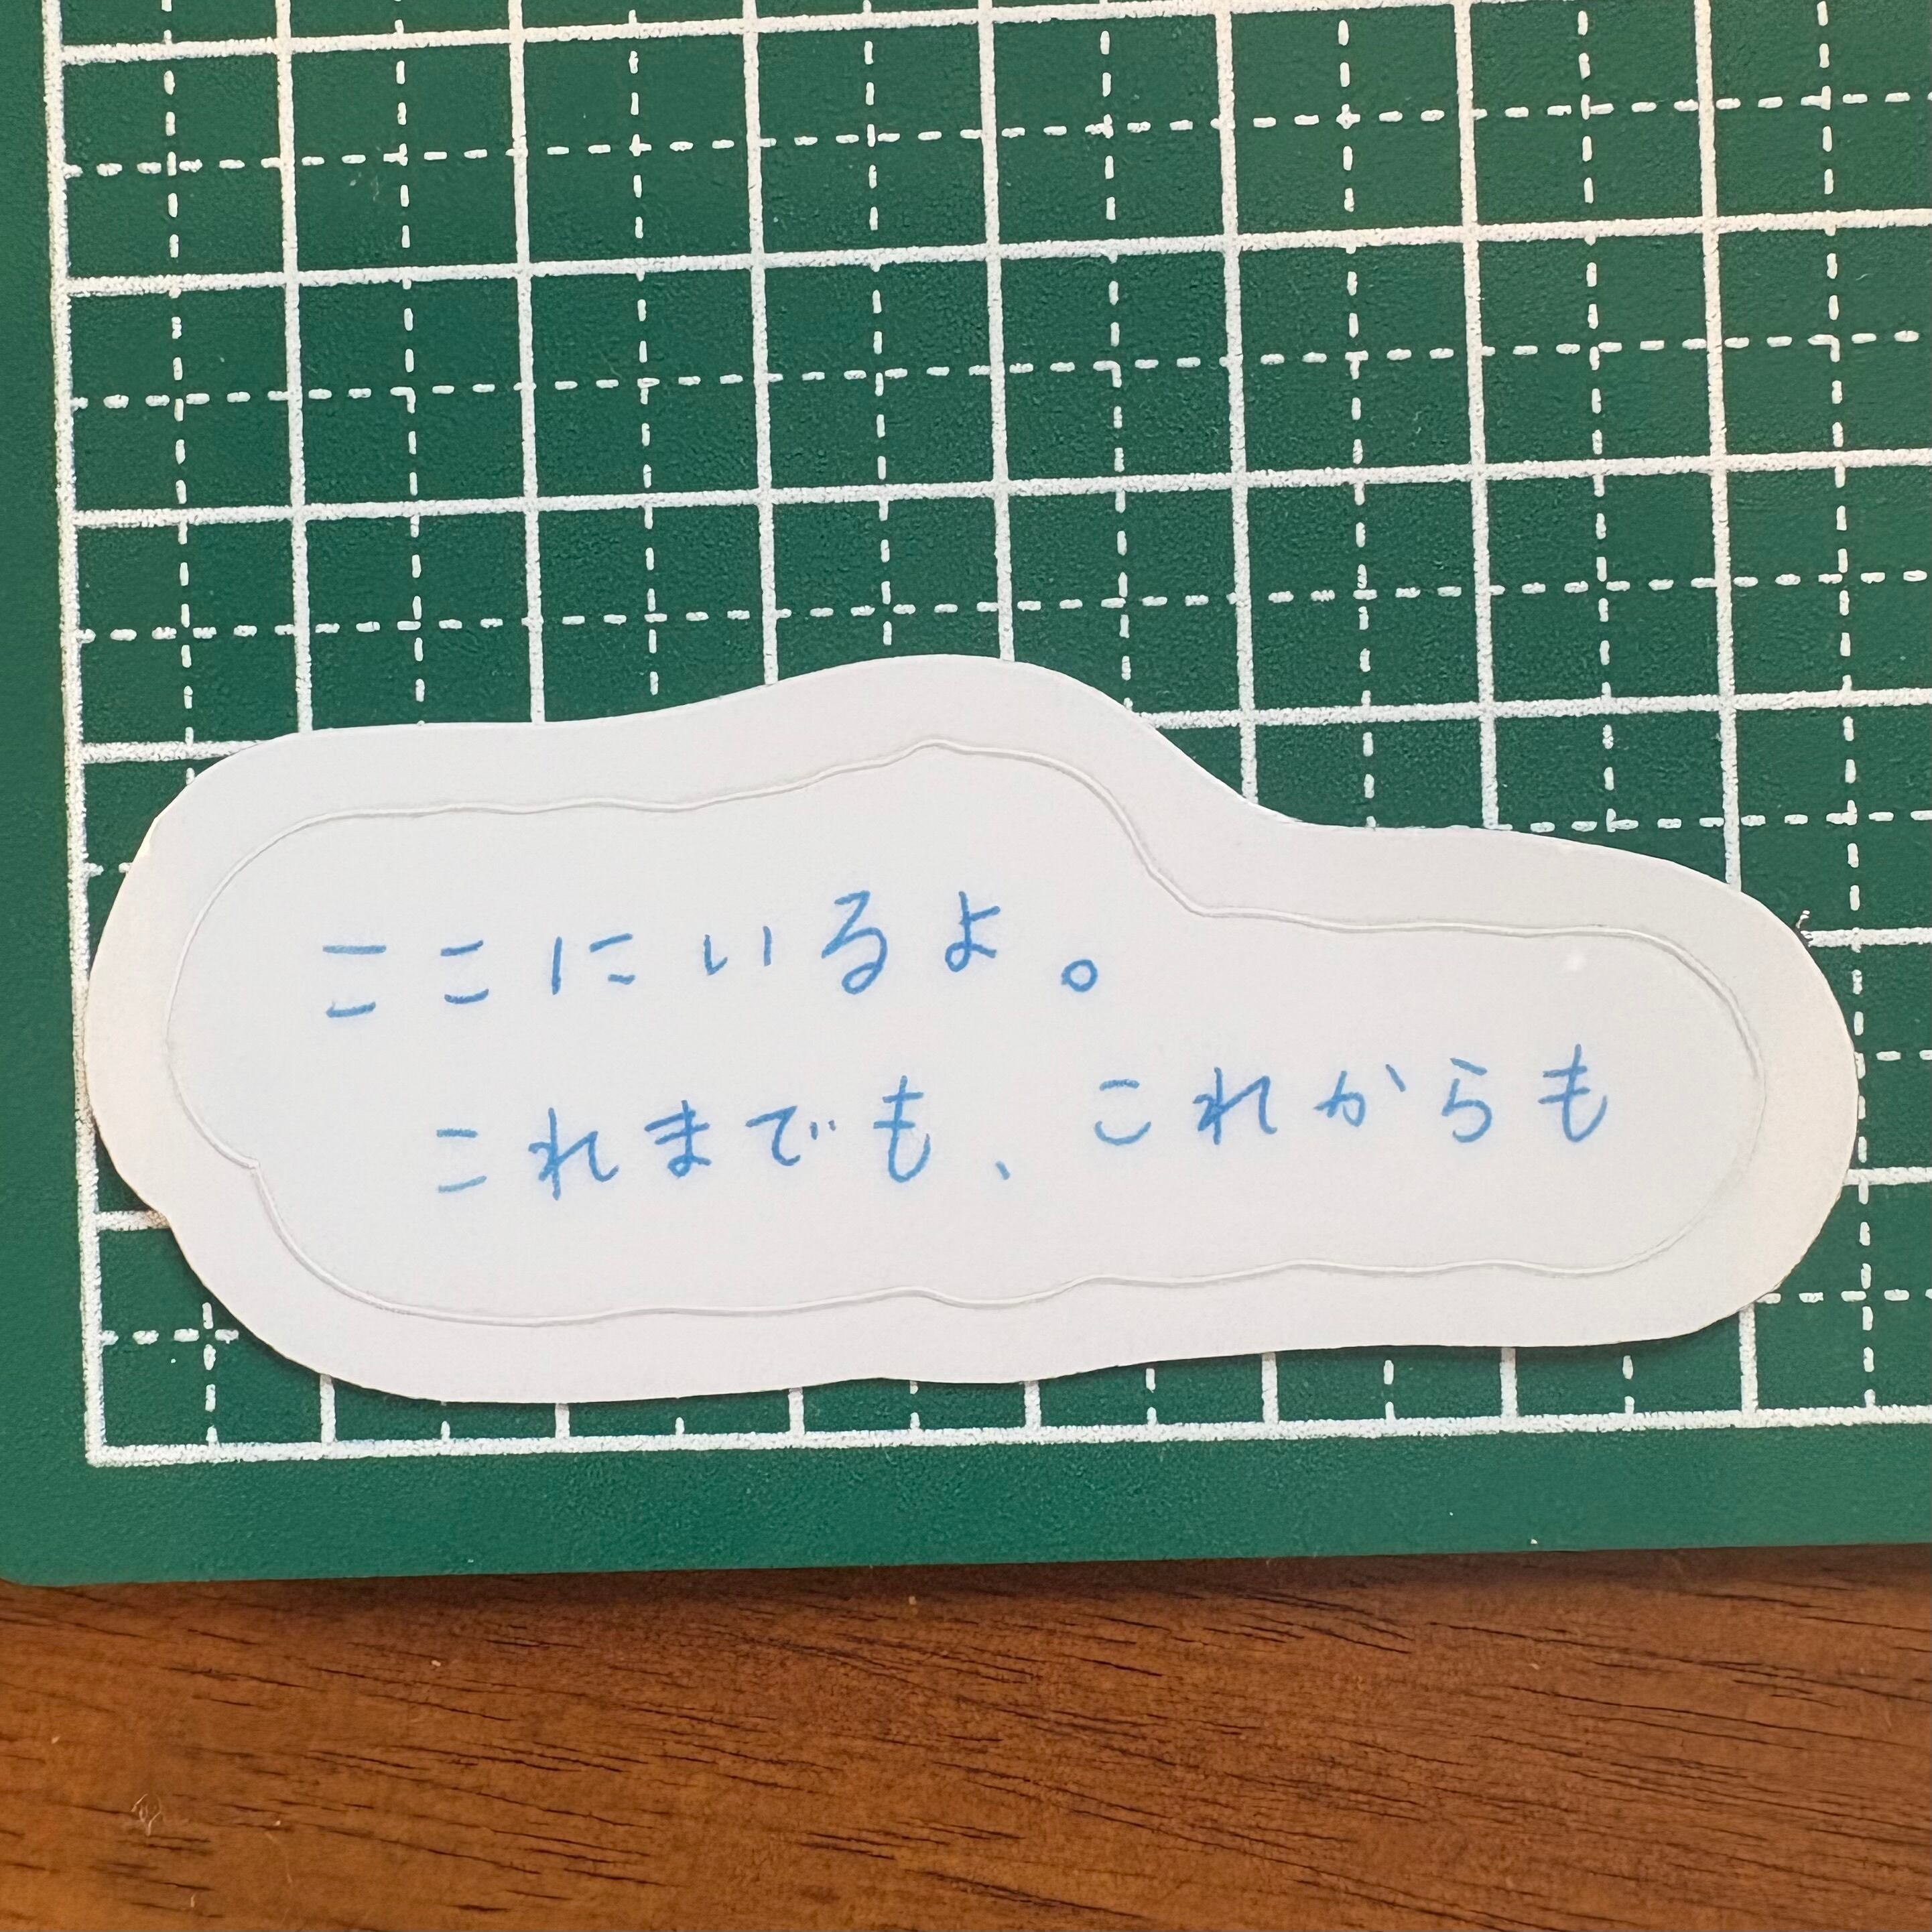 ここにいるよ。
これまでも、これからも